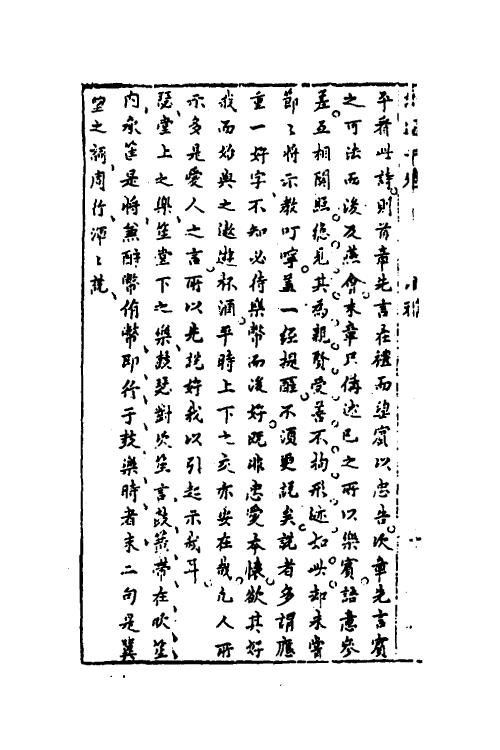 平看此詩則首章先言在禮而望賓以忠告次章先言賓
之可法而後及燕會末章只備述己之所以樂賓語意參
差互相關照總見其為親賢受善不拘形迹如此却未嘗
節〻將示教叮嚀蓋一經提醒不須更說矣說者多謂應
重一好字不知必待樂幣而後好既非忠愛本懷欲其好
我而始與之遨遊杯酒平時上下之交亦安在哉凡人所
示多是愛人之言所以先提好我以引起示我耳
瑟堂上之樂笙堂下之樂鼓瑟對吹笙言鼓燕帶在吹笙
內承筐是將兼酬幣侑幣即行于鼓樂時者末二句是冀
望之詞周行渾〻說
小雅